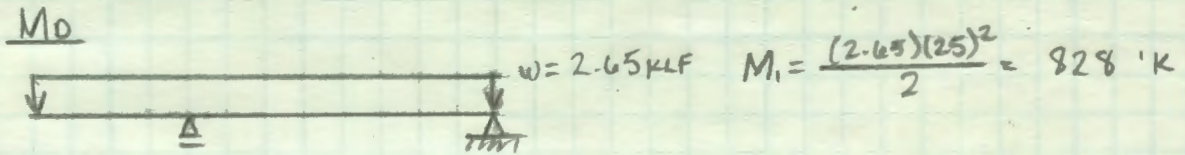 MD
w = 2.65 KLF M₁ = (2.65)(25)² / 2 = 828 'K